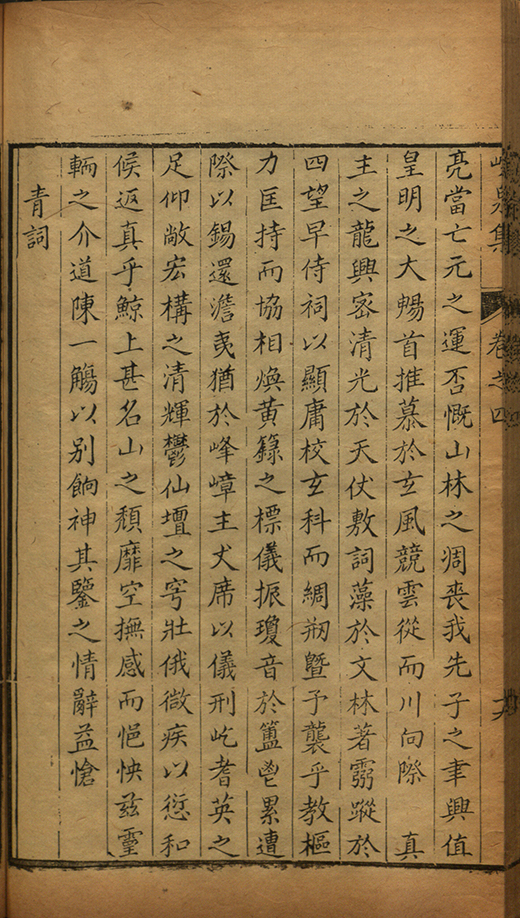 峴泉集 卷之四
亮當亡元之運否慨山林之凋喪我先子之聿興值
皇明之大暢首推慕於玄風競雲從而川向際 真
主之龍興宻清光於天伏敷詞藻於文林著霛蹤於
四望早侍祠以顯庸校玄科而綢䌸曁予襲乎教樞
力匡持而協相煥黄籙之標儀振瓊音於簠鬯累遭
際以錫還澹夷猶於峰嶂主丈席以儀刑屹耆英之
足仰敞宏構之清輝鬱仙壇之穹壯俄微疾以愆和
候返真乎鯨上甚名山之頹靡空撫感而悒怏兹靈
輀之介道陳一觴以别餉神其鑒之情辭益愴
青詞